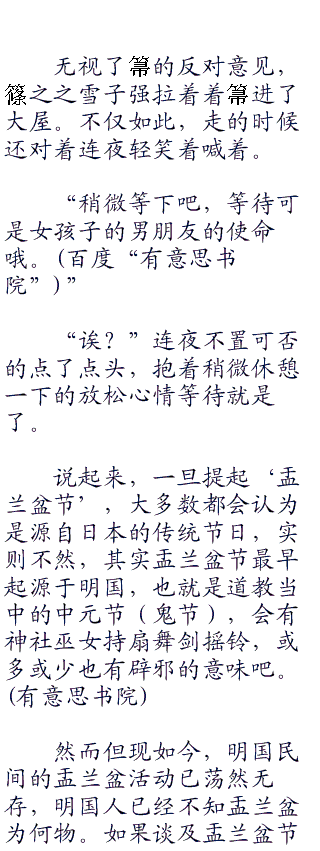 无视了箒的反对意见，
篠之之雪子强拉着着箒进了
大屋。不仅如此，走的时候
还对着连夜轻笑着喊着。
“稍微等下吧，等待可
是女孩子的男朋友的使命
哦。(百度“有意思书
院”)”
“诶？”连夜不置可否
的点了点头，抱着稍微休憩
一下的放松心情等待就是
了。
说起来，一旦提起‘盂
兰盆节’，大多数都会认为
是源自日本的传统节日，实
则不然，其实盂兰盆节最早
起源于明国，也就是道教当
中的中元节（鬼节），会有
神社巫女持扇舞剑摇铃，或
多或少也有辟邪的意味吧。
(有意思书院)
然而但现如今，明国民
间的盂兰盆活动已荡然无
存，明国人已经不知盂兰盆
为何物。如果谈及盂兰盆节